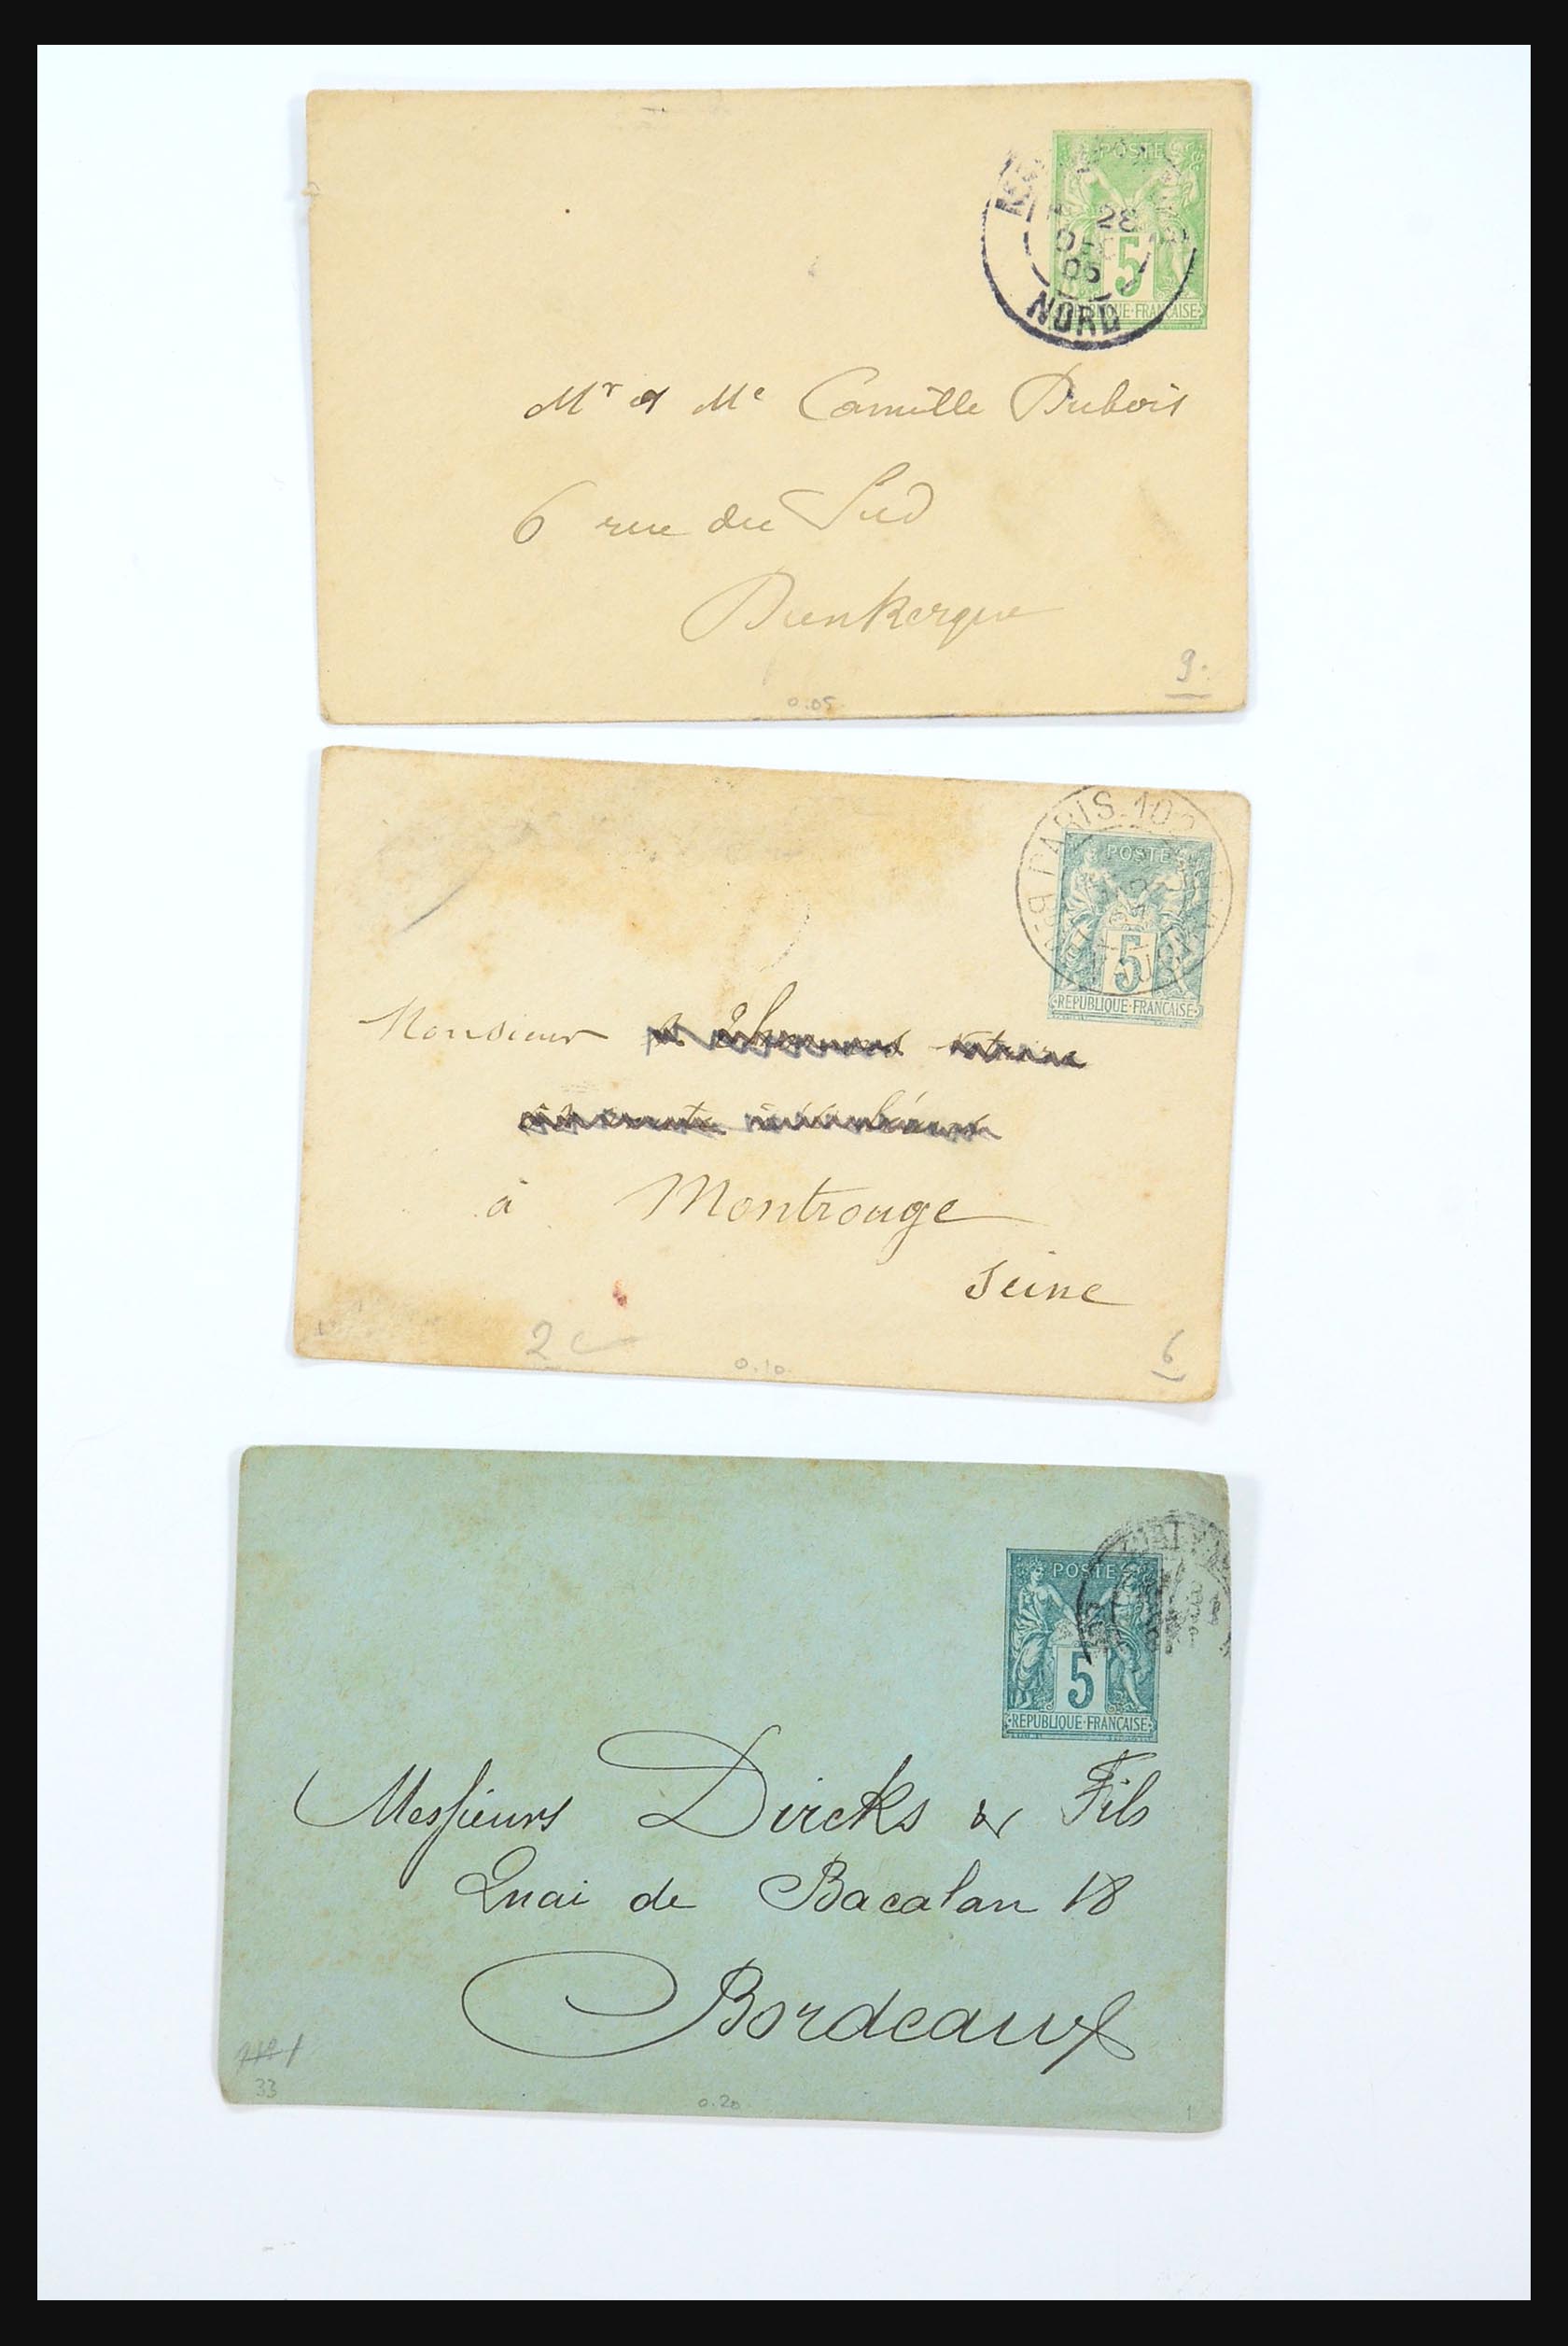 POSTES
28
DEC
05
NORD
5
REPUBLIQUE·FRANÇAISE
Mr et Me Camille Dubois
6 rue du Sud
Dunkerque
9.
0.05
PARIS.10
POSTES
5
·REPUBLIQUE·FRANÇAISE·
Monsieur
à Montrouge
Seine
2c
0.10
6
POSTES
5
·REPUBLIQUE·FRANÇAISE·
Messieurs Dircks & Fils
Quai de Bacalan 18
Bordeaux
33
0.20
1